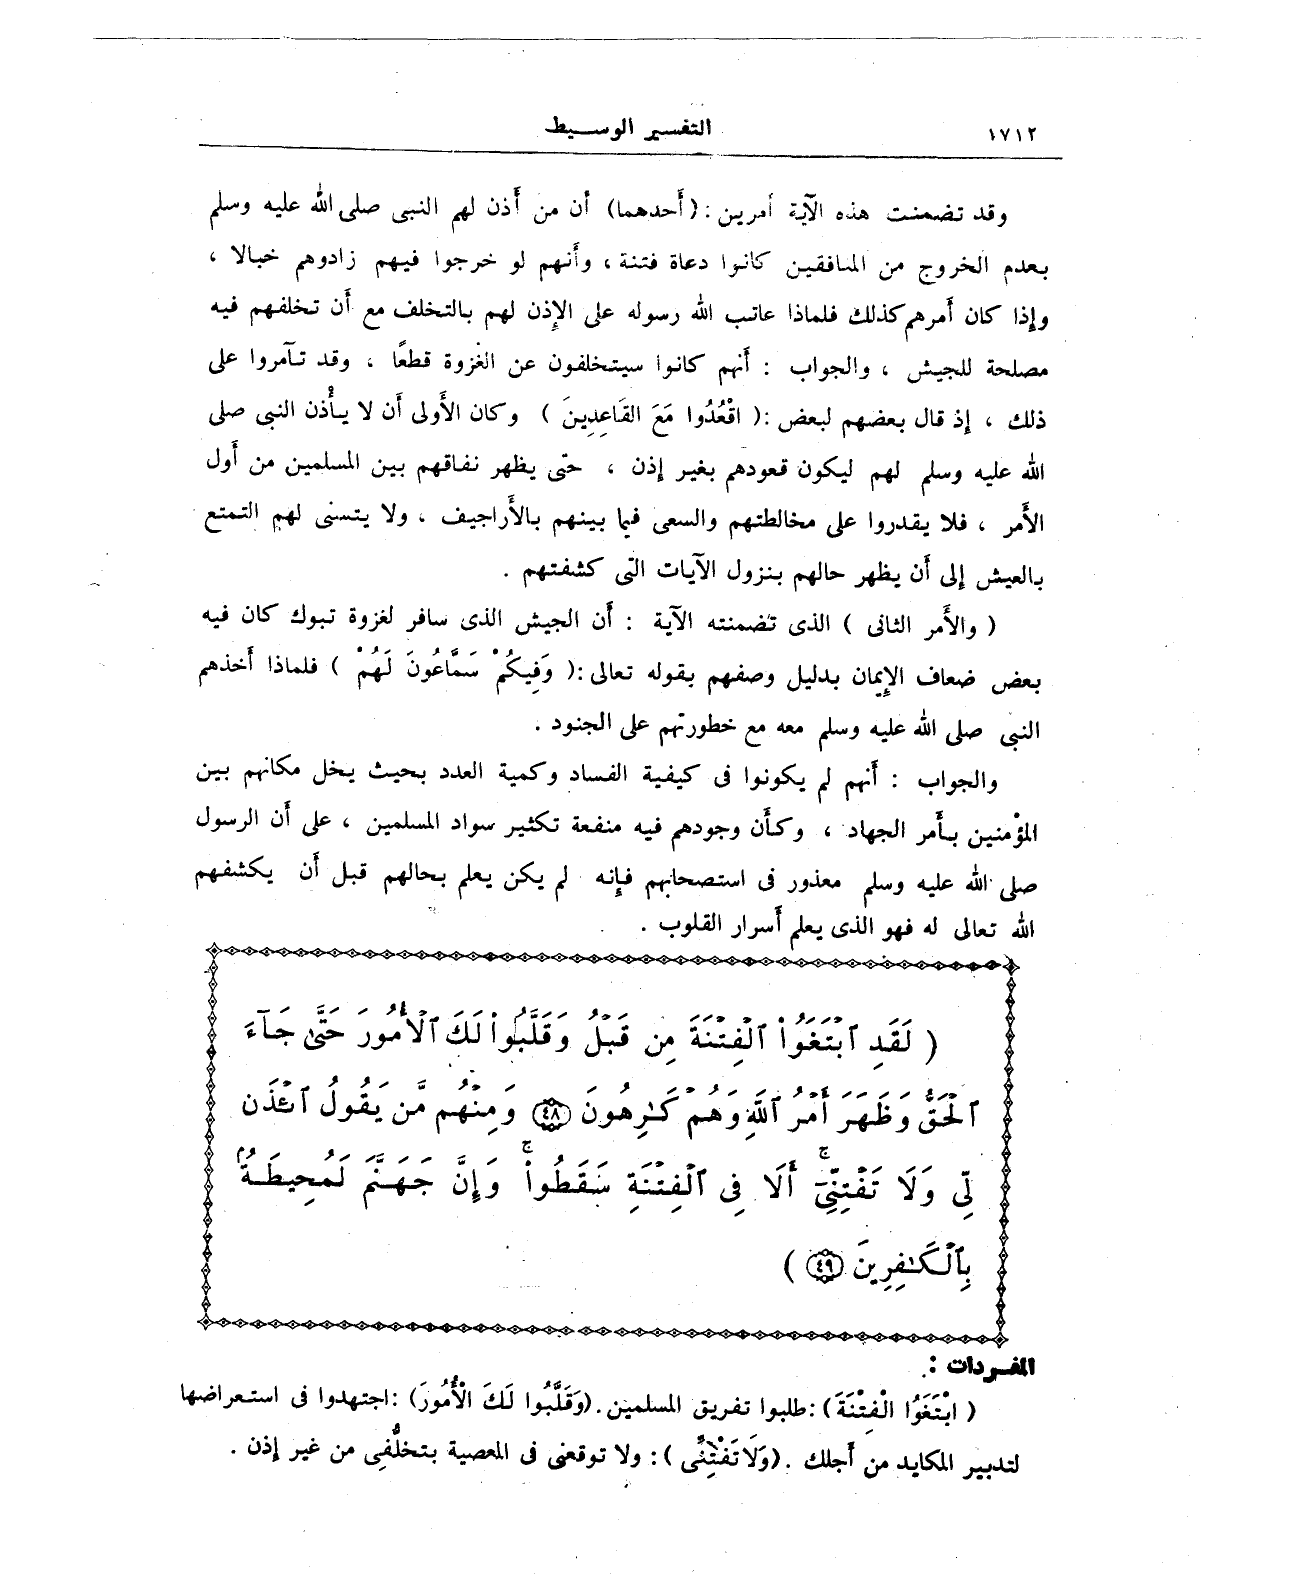 ١٧١٢
التفسير الوسيط
وقد تضمنت هذه الآية أمرين : (أحدهما) أن من أذن لهم النبى صلى الله عليه وسلم
بعدم الخروج من المنافقين كانوا دعاة فتنة ، وأنهم لو خرجوا فيهم زادوهم خبالا ،
وإذا كان أمرهم كذلك فلماذا عاتب الله رسوله على الإذن لهم بالتخلف مع أن تخلفهم فيه
مصلحة للجيش ، والجواب : أنهم كانوا سيتخلفون عن الغزوة قطعًا ، وقد تآمروا على
ذلك ، إذ قال بعضهم لبعض : ( اقْعُدُوا مَعَ القَاعِدِينَ ) وكان الأولى أن لا يأذن النبى صلى
الله عليه وسلم لهم ليكون قعودهم بغير إذن ، حتى يظهر نفاقهم بين المسلمين من أول
الأمر ، فلا يقدروا على مخالطتهم والسعى فيما بينهم بالأراجيف ، ولا يتسنى لهم التمتع
بالعيش إلى أن يظهر حالهم بنزول الآيات التى كشفتهم .
( والأمر الثانى ) الذى تضمنته الآية : أن الجيش الذى سافر لغزوة تبوك كان فيه
بعض ضعاف الإيمان بدليل وصفهم بقوله تعالى : ( وَفِيكُمْ سَمَّاعُونَ لَهُمْ ) فلماذا أخذهم
النبى صلى الله عليه وسلم معه مع خطورتهم على الجنود .
والجواب : أنهم لم يكونوا فى كيفية الفساد وكمية العدد بحيث يخل مكانهم بين
المؤمنين بأمر الجهاد ، وكأن وجودهم فيه منفعة تكثير سواد المسلمين ، على أن الرسول
صلى الله عليه وسلم معذور فى استصحابهم فإنه لم يكن يعلم بحالهم قبل أن يكشفهم
الله تعالى له فهو الذى يعلم أسرار القلوب .
( لَقَدِ ٱبْتَغَوُا۟ ٱلْفِتْنَةَ مِن قَبْلُ وَقَلَّبُوا۟ لَكَ ٱلْأُمُورَ حَتَّىٰ جَآءَ
ٱلْحَقُّ وَظَهَرَ أَمْرُ ٱللَّهِ وَهُمْ كَـٰرِهُونَ ٤٨ وَمِنْهُم مَّن يَقُولُ ٱئْذَن
لِّى وَلَا تَفْتِنِّىٓ ۚ أَلَا فِى ٱلْفِتْنَةِ سَقَطُوا۟ ۗ وَإِنَّ جَهَنَّمَ لَمُحِيطَةٌۢ
بِٱلْكَـٰفِرِينَ ٤٩ )
المفردات :
( ابْتَغَوُا الْفِتْنَةَ ) : طلبوا تفريق المسلمين . (وَقَلَّبُوا لَكَ الْأُمُورَ) : اجتهدوا فى استعراضها
لتدبير المكايد من أجلك . (وَلَا تَفْتِنِّى ) : ولا توقعنى فى المعصية بتخلُّفِى من غير إذن .